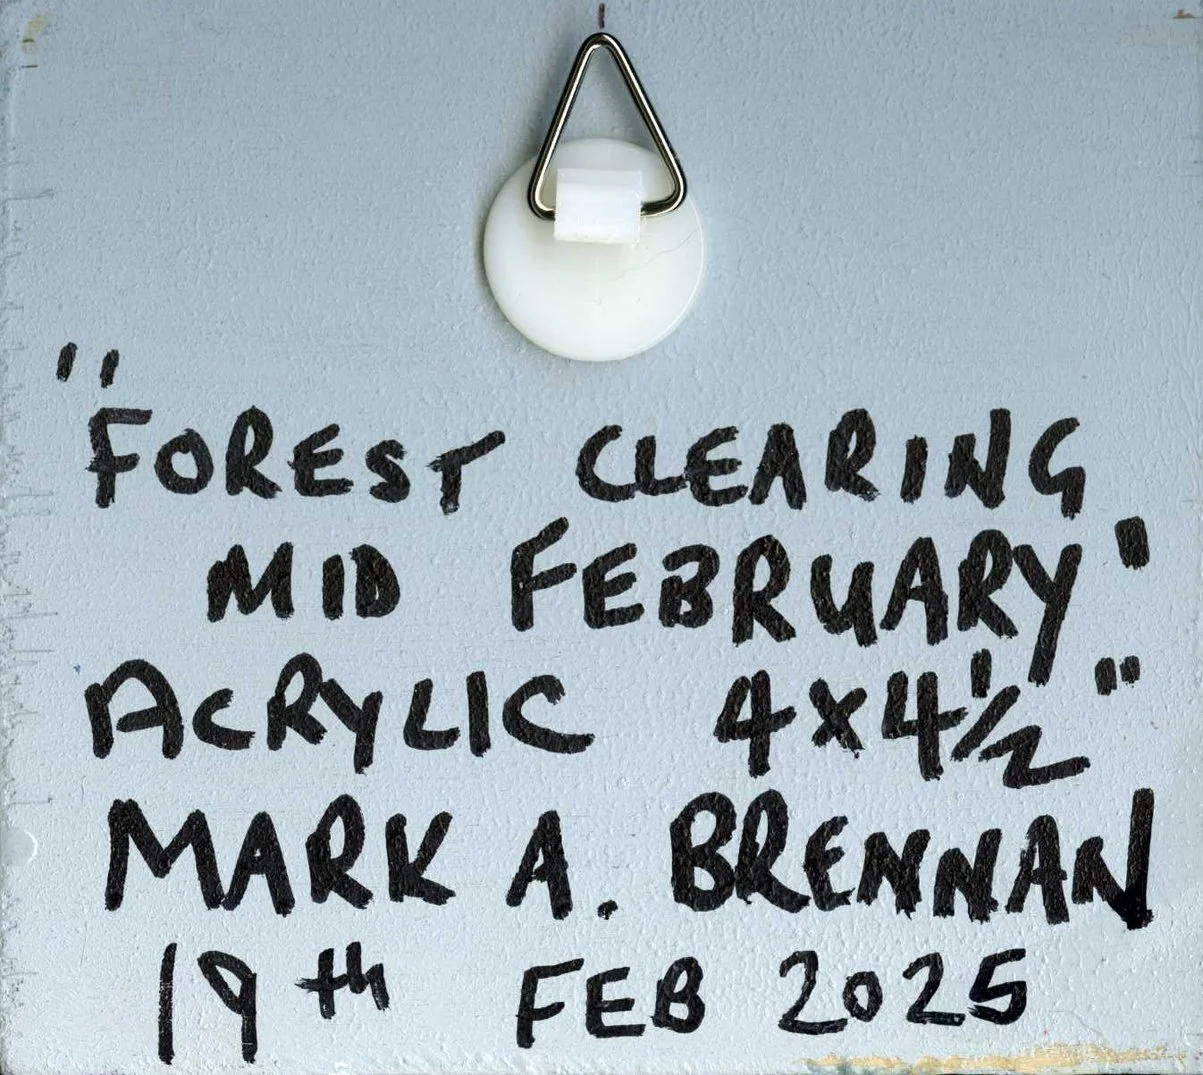 "FOREST CLEARING
MID FEBRUARY"
ACRYLIC 4x4½"
MARK A. BRENNAN
19th FEB 2025